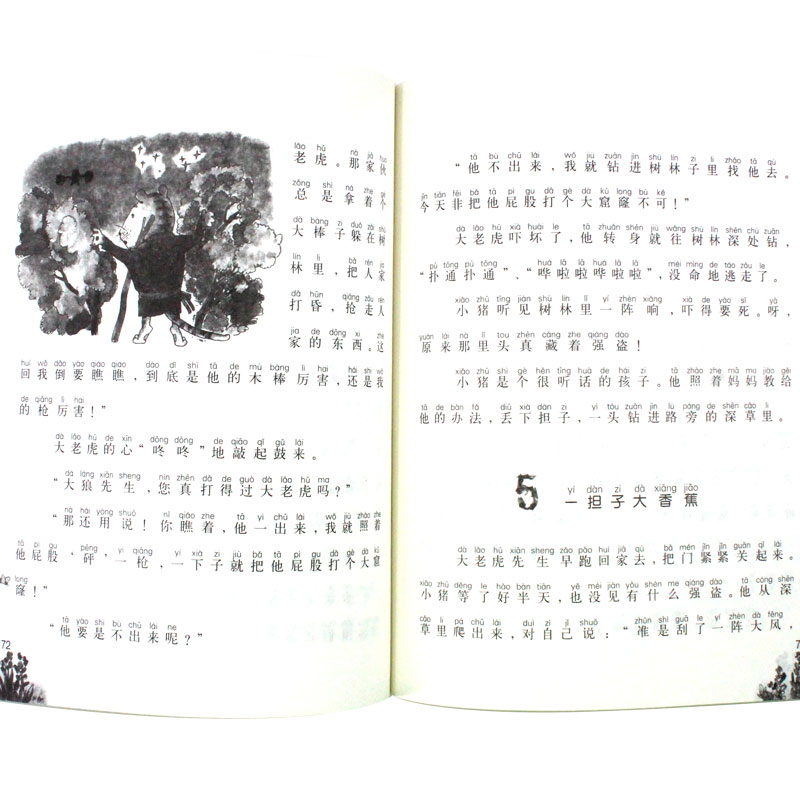 lǎo hǔ nà jiā huo
老虎。那家伙
zǒng shì ná zhe gè
总是拿着个
dà bàng zi duǒ zài shù
大棒子躲在树
lín lǐ bǎ rén jiā
林里，把人家
dǎ hūn qiǎng zǒu rén
打昏，抢走人
jia de dōng xi zhè
家的东西。这
huí wǒ dào yào qiáo qiáo dào dǐ shì tā de mù bàng lì hai hái shì wǒ
回我倒要瞧瞧，到底是他的木棒厉害，还是我
de qiāng lì hai
的枪厉害！”
dà lǎo hǔ de xīn dōng dōng de qiāo qǐ gǔ lái
大老虎的心“咚咚”地敲起鼓来。
dà láng xiān sheng nín zhēn dǎ de guò dà lǎo hǔ ma
“大狼先生，您真打得过大老虎吗？”
nà hái yòng shuō nǐ qiáo zhe tā yì chū lái wǒ jiù zhào zhe
“那还用说！你瞧着，他一出来，我就照着
tā pì gu pēng yì qiāng yí xià zi jiù bǎ tā pì gu dǎ gè dà kū
他屁股，砰，一枪，一下子就把他屁股打个大窟
long
窿！”
tā yào shi bù chū lái ne
“他要是不出来呢？”
72
tā bù chū lái wǒ jiù zuān jìn shù lín zi lǐ zhǎo tā qù
“他不出来，我就钻进树林子里找他去。
jīn tiān fēi bǎ tā pì gu dǎ gè dà kū long bù kě
今天非把他屁股打个大窟窿不可！”
dà lǎo hǔ xià huài le tā zhuǎn shēn jiù wǎng shù lín shēn chù zuān
大老虎吓坏了，他转身就往树林深处钻，
pū tōng pū tōng huā lā lā huā lā lā méi mìng de táo zǒu le
“扑通扑通”、“哗啦啦哗啦啦”，没命地逃走了。
xiǎo zhū tīng jiàn shù lín lǐ yí zhèn xiǎng xià de yào sǐ yā
小猪听见树林里一阵响，吓得要死。呀，
yuán lái nà lǐ tou zhēn cáng zhe qiáng dào
原来那里头真藏着强盗！
xiǎo zhū shì gè hěn tīng huà de hái zi tā zhào zhe mā ma jiāo gěi
小猪是个很听话的孩子。他照着妈妈教给
tā de bàn fǎ diū xià dàn zi yì tóu zuān jìn lù páng de shēn cǎo lǐ
他的办法，丢下担子，一头钻进路旁的深草里。
5
yí dàn zi dà xiāng jiāo
一担子大香蕉
dà lǎo hǔ xiān sheng zǎo pǎo huí jiā qù bǎ mén jǐn jǐn guān qǐ lái
大老虎先生早跑回家去，把门紧紧关起来。
xiǎo zhū děng le hǎo bàn tiān yě méi jiàn yǒu shén me qiáng dào tā cóng shēn
小猪等了好半天，也没见有什么强盗。他从深
cǎo lǐ pá chū lái duì zì jǐ shuō zhǔn shì guā le yí zhèn dà fēng
草里爬出来，对自己说：“准是刮了一阵大风，